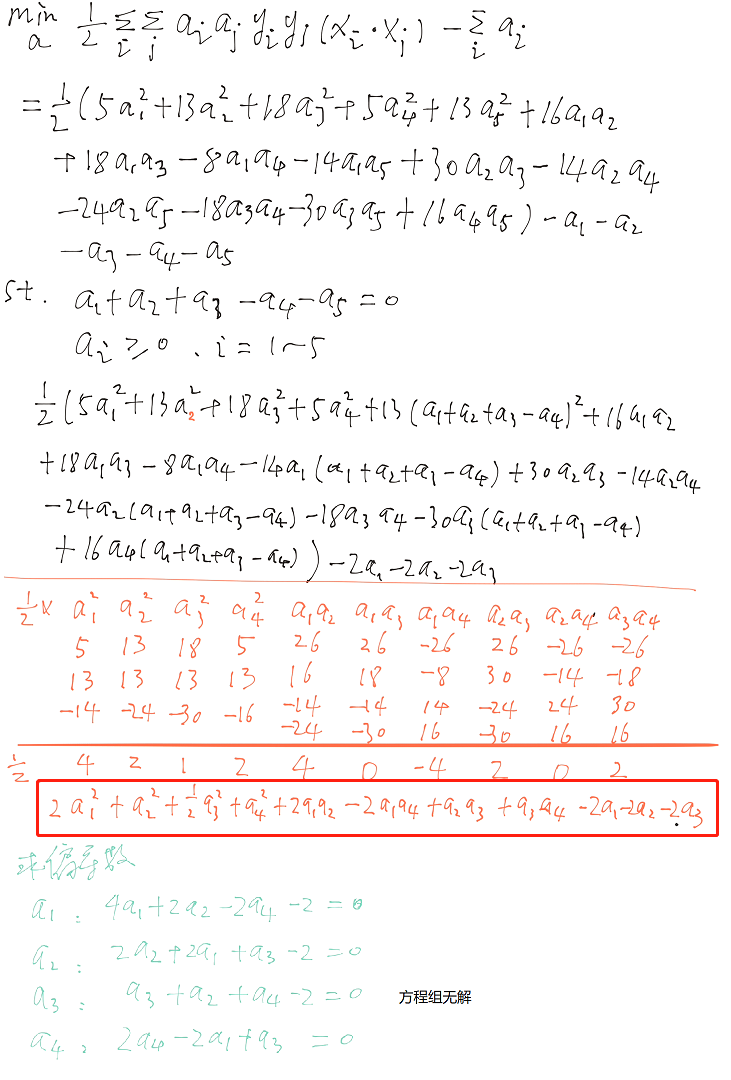 min a 1/2 Σi Σj ai aj yi yj (xi·xj) − Σi ai
= 1/2 (5a₁² + 13a₂² + 18a₃² + 5a₄² + 13a₅² + 16a₁a₂
+ 18a₁a₃ − 8a₁a₄ − 14a₁a₅ + 30a₂a₃ − 14a₂a₄
− 24a₂a₅ − 18a₃a₄ − 30a₃a₅ + 16a₄a₅) − a₁ − a₂
− a₃ − a₄ − a₅
st. a₁ + a₂ + a₃ − a₄ − a₅ = 0
ai ≥ 0 . i = 1~5
1/2 (5a₁² + 13a₂² + 18a₃² + 5a₄² + 13(a₁+a₂+a₃−a₄)² + 16a₁a₂
+ 18a₁a₃ − 8a₁a₄ − 14a₁(a₁+a₂+a₃−a₄) + 30a₂a₃ − 14a₂a₄
− 24a₂(a₁+a₂+a₃−a₄) − 18a₃a₄ − 30a₃(a₁+a₂+a₃−a₄)
+ 16a₄(a₁+a₂+a₃−a₄)) − 2a₁ − 2a₂ − 2a₃
1/2 × a₁² a₂² a₃² a₄² a₁a₂ a₁a₃ a₁a₄ a₂a₃ a₂a₄ a₃a₄
5 13 18 5 26 26 −26 26 −26 −26
13 13 13 13 16 18 −8 30 −14 −18
−14 −24 −30 −16 −14 −14 14 −24 24 30
−24 −30 16 −30 16 16
1/2 4 2 1 2 4 0 −4 2 0 2
2a₁² + a₂² + 1/2a₃² + a₄² + 2a₁a₂ − 2a₁a₄ + a₂a₃ + a₃a₄ − 2a₁ − 2a₂ − 2a₃
求偏导数
a₁: 4a₁ + 2a₂ − 2a₄ − 2 = 0
a₂: 2a₂ + 2a₁ + a₃ − 2 = 0
a₃: a₃ + a₂ + a₄ − 2 = 0 方程组无解
a₄: 2a₄ − 2a₁ + a₃ = 0